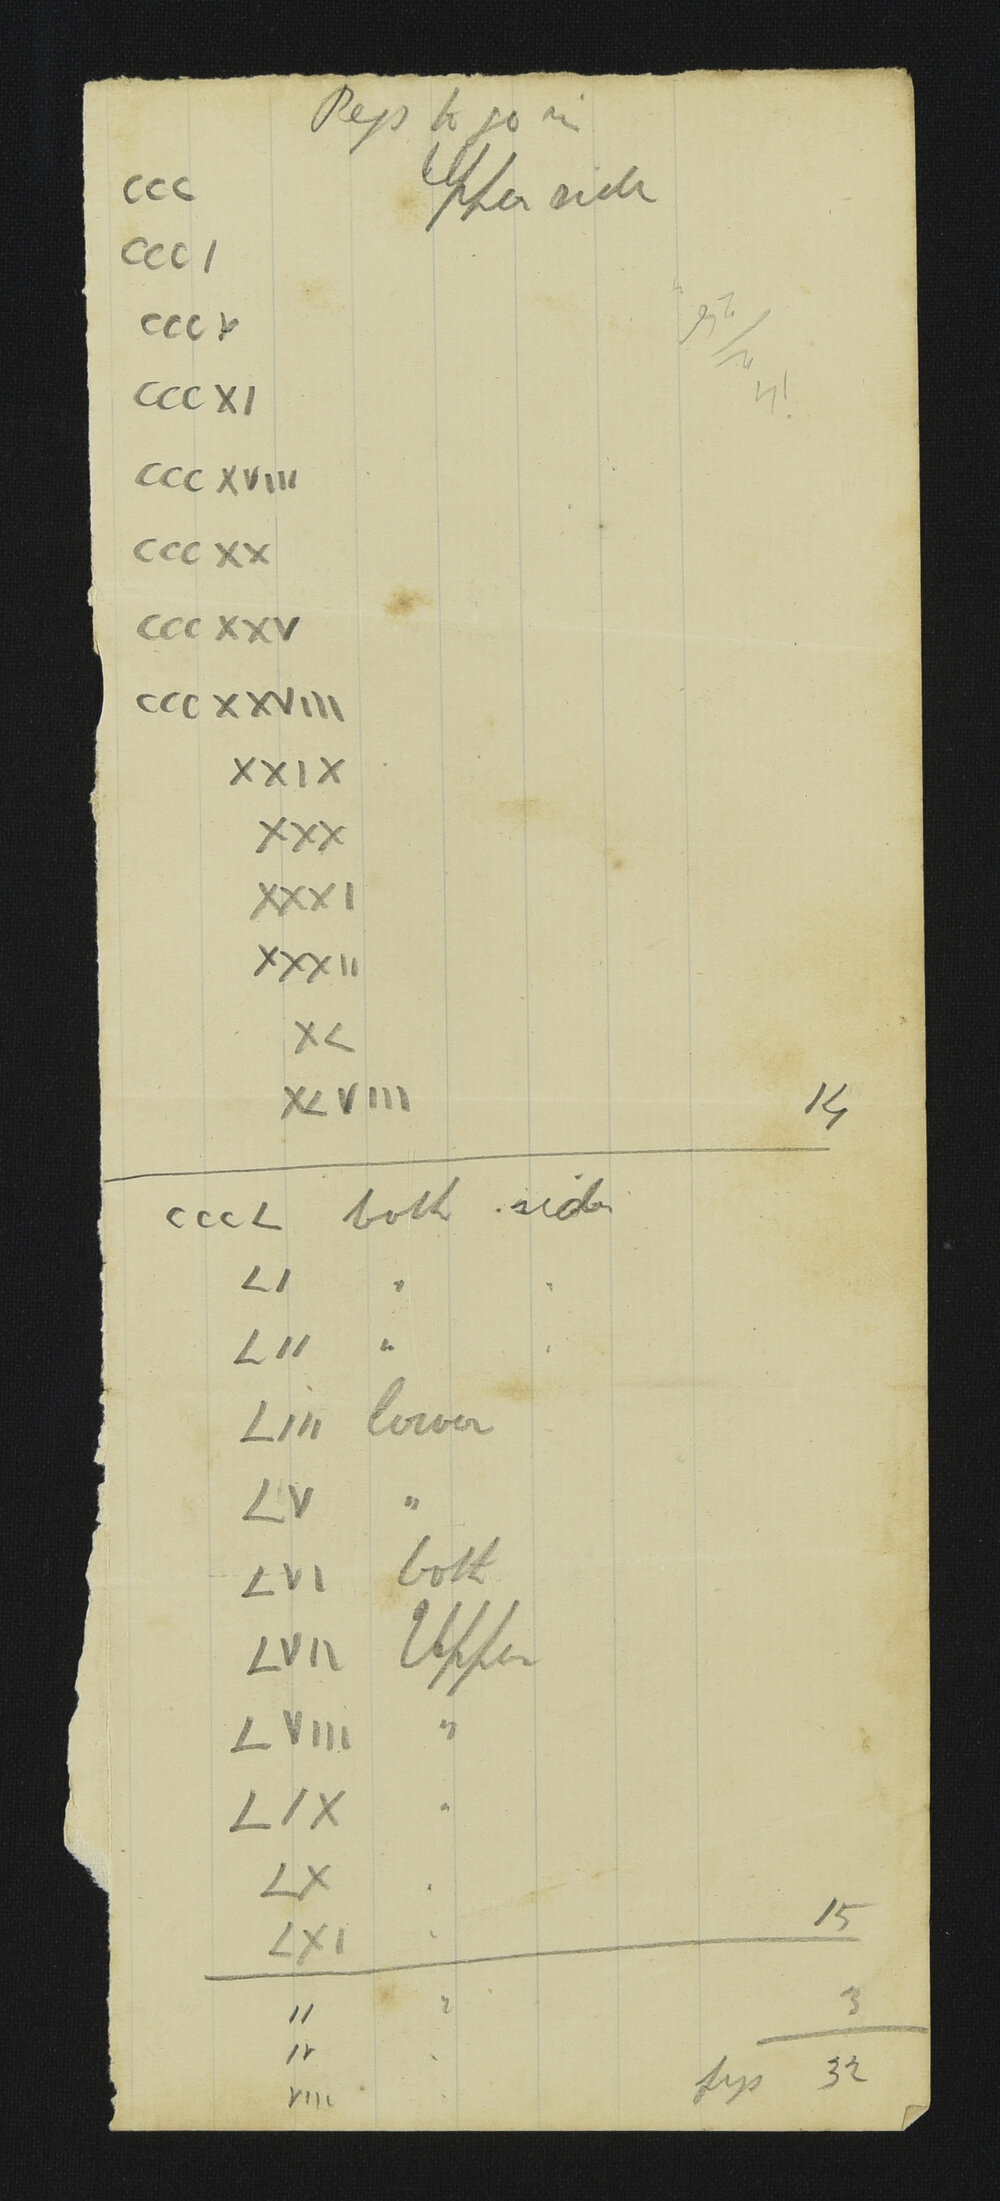 Pegs to go in
CCC Upper side
CCCI
CCCV
CCCXI
CCCXVIII
CCCXX
CCCXXV
CCCXXVIII
XXIX
XXX
XXXI
XXXII
XL
XLVIII 14
CCCL both side
LI " "
LII " "
LIII lower
LV "
LVI both
LVII Upper
LVIII "
LIX "
LX "
LXI " 15
II " 3
IV "
VIII " pegs 32